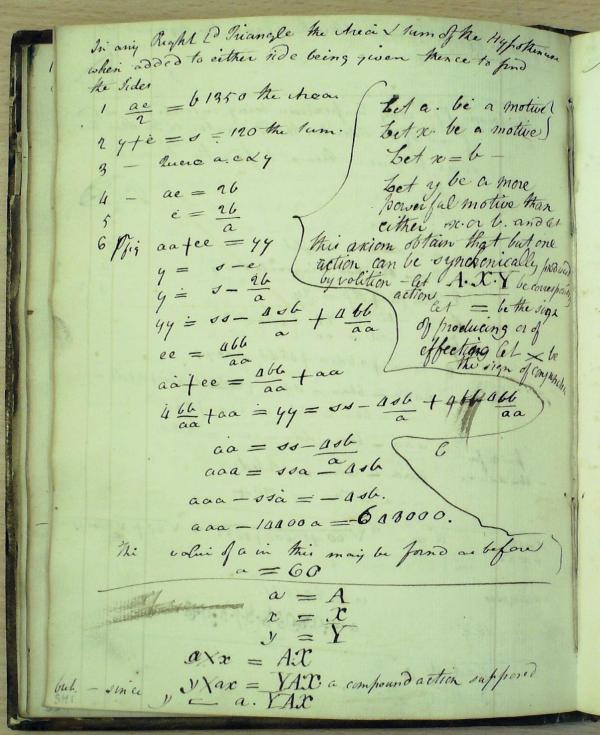 In any Right Ld Triangle the Area & sum of the Hypothenuse
when added to either side being given thence to find
the Sides
1 ae/2 = b 1350 the Area
2 y+e = s = 120 the sum.
3 – Quere a, e & y
4 – ae = 2b
5 e = 2b/a
6 aa+ee = yy
y = s – e
y = s – 2b/a
yy = ss – 4sb/a + 4bb/aa
ee = 4bb/aa
aa+ee = 4bb/aa + aa
4bb/aa + aa = yy = ss – 4sb/a + 4bb/aa
aa = ss – 4sb/a
aaa = ssa – 4sb
aaa – ssa = – 4sb.
aaa – 14400a = – 648000.
The value of a in this may be found as before
a = 60
Let a. be a motive
Let x. be a motive
Let x = b –
Let y be a more
powerful motive than
either x. or b. and let
this axiom obtain that but one
action can be synchronically produced
by volition – let A. X. Y be corresponding
actions
let = be the sign
of producing or of
effecting let × be
the sign of
a = A
x = X
y = Y
a×x = AX
but – since y×ax = YAX a compound action supposed
y = a. YAX